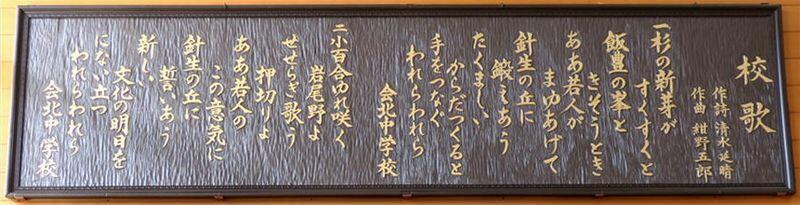 校歌
作詩 清水延晴
作曲 紺野五郎
一 杉の新芽が
すくすくと
飯豊の峯と
きそうとき
ああ若人が
まゆあげて
針生の丘に
鍛えあう
たくましい
からだつくると
手をつなぐ
われられら
会北中学校
二 小百合ゆれ咲く
岩尾野よ
せせらぎ歌う
押切りよ
ああ若人の
この意気に
針生の丘に
誓いあう
新しい
文化の明日を
にない立つ
われられら
会北中学校